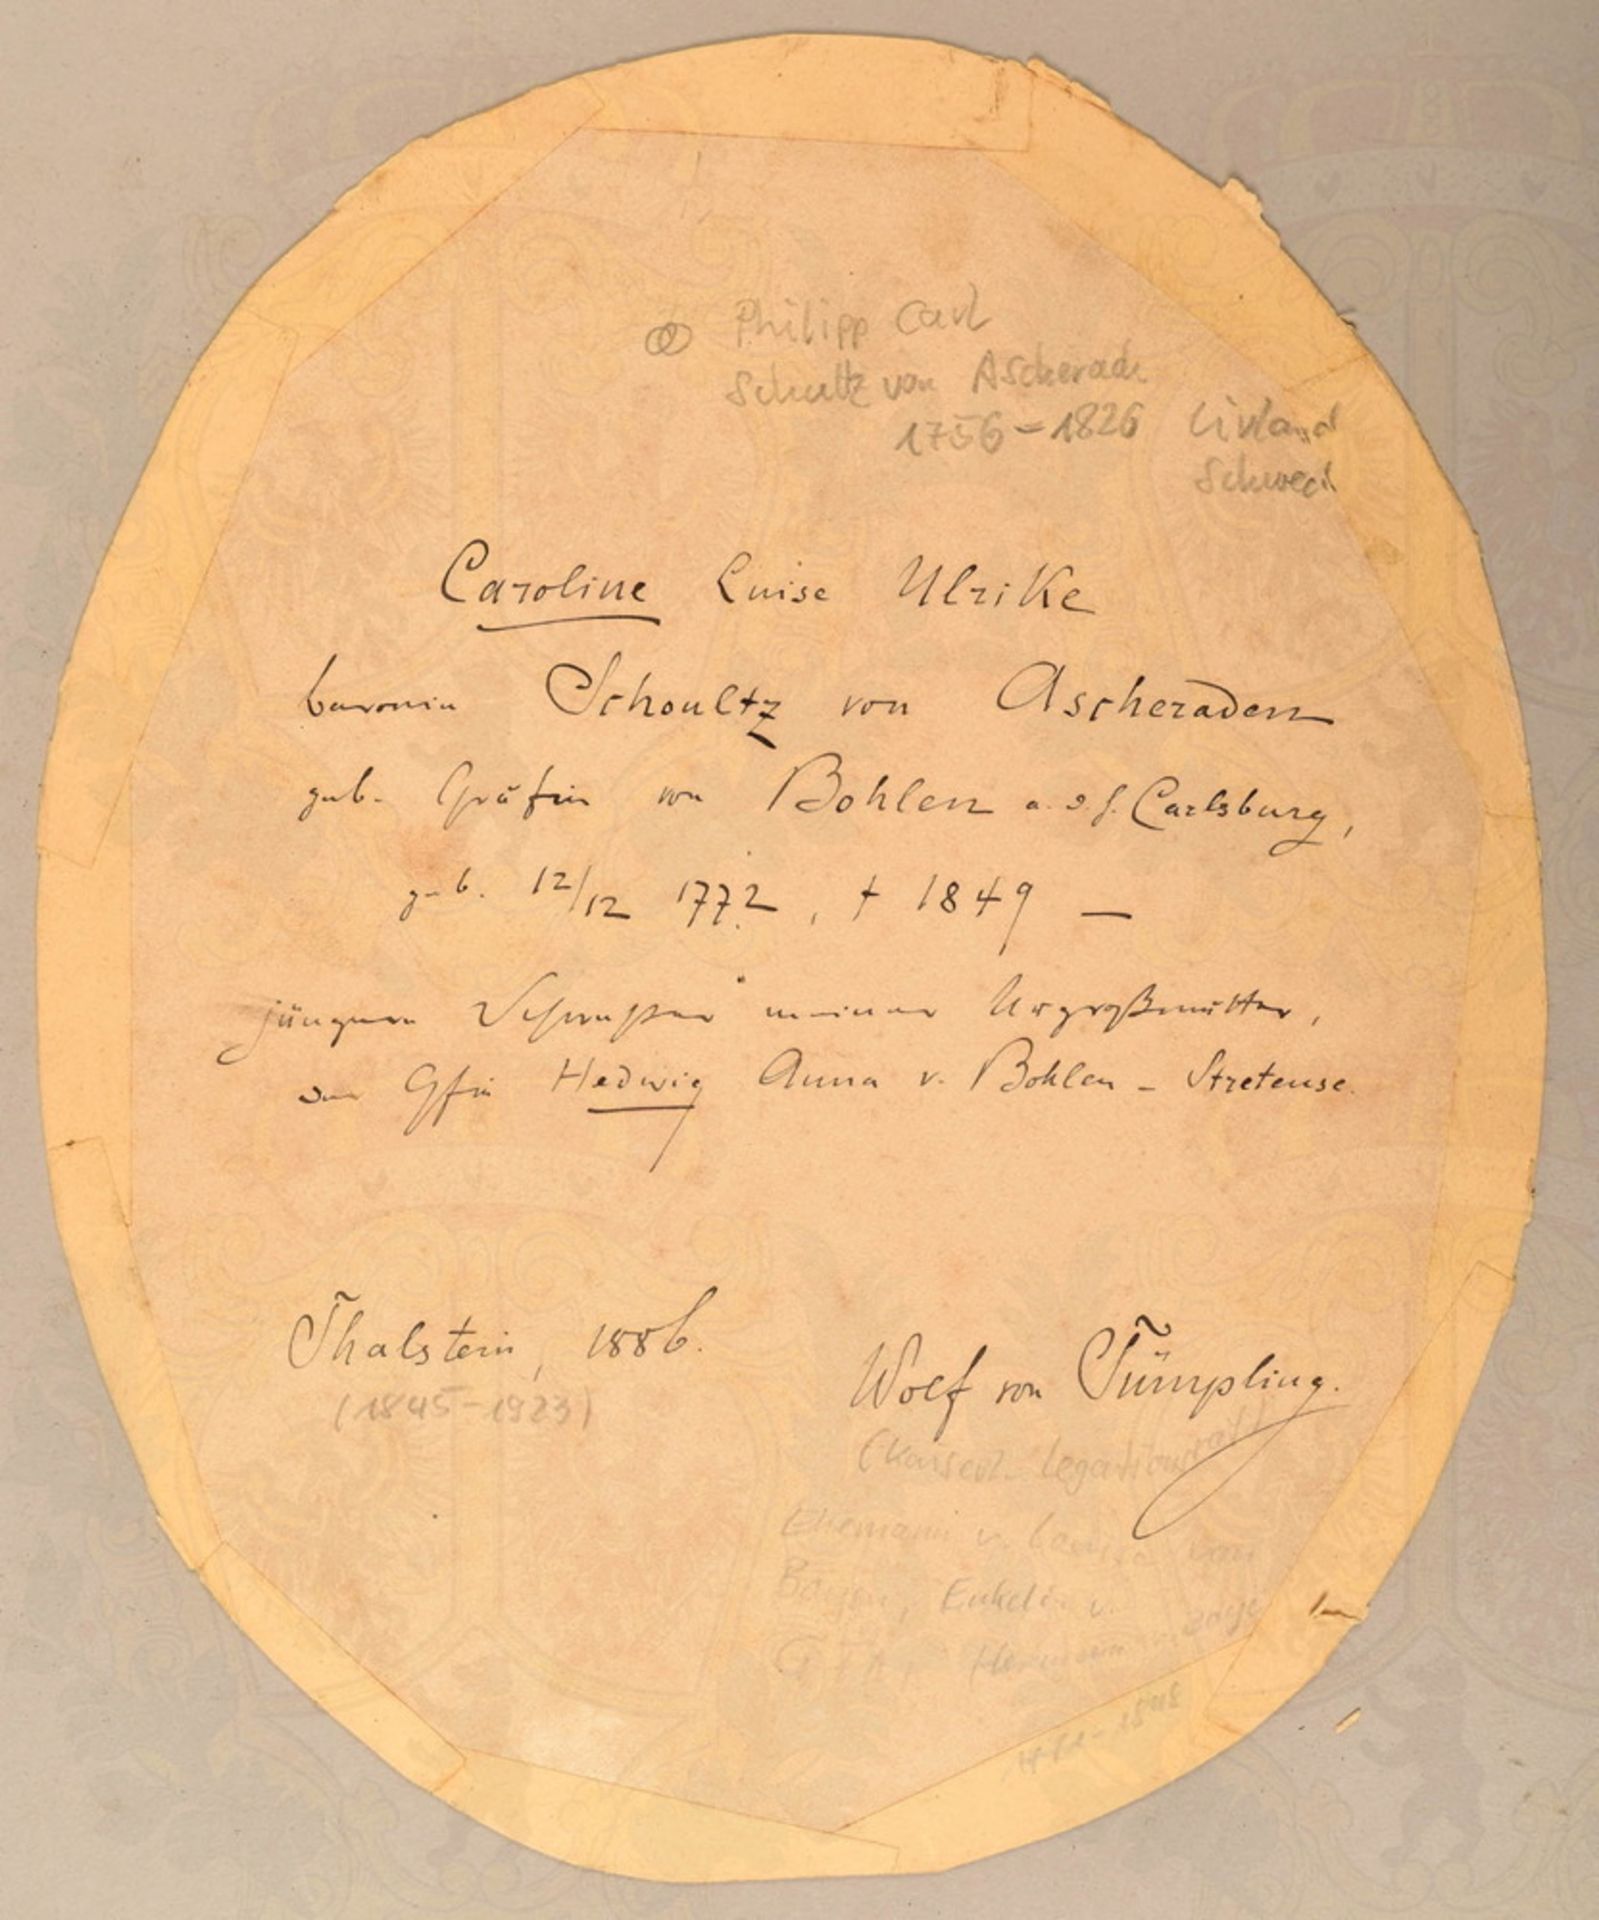 ⚭ Philipp Carl
Schultz von Ascherade
1756-1826 Livland
Schwed.
Caroline Luise Ulrike
baronin Schoultz von Ascheraden
geb. Gräfin von Bohlen a. d. H. Carlsburg,
geb. 12/12 1772, † 1849 —
jüngere Schwester meiner Urgroßmutter,
der Gfin Hedwig Anna v. Bohlen - Stretense.
Thalstein, 1886.
(1845-1923)
Wolf von Tümpling.
(Kaiserl. Legationsrat)
Ehemann v. von
Enkelin v.